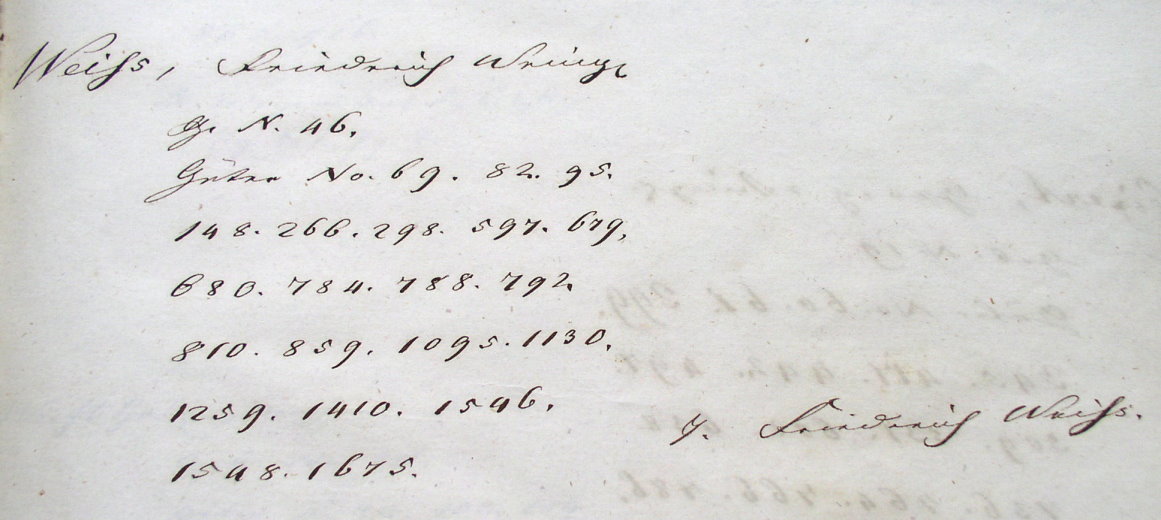 Weiſs, Friedrich
G. N. 46.
Güter No. 69. 82. 95.
148. 266. 298. 597. 679,
680. 784. 788. 792.
810. 859. 1095. 1130.
1259. 1410. 1546.
1548. 1675.
Friedrich Weiſs.